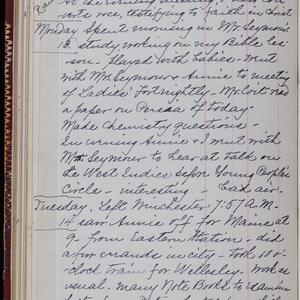 At the evening meeting
vots rose, testifying to faith in Christ
Monday Spent morning in Mr. Seymour's
13. study, working on my Bible les-
son. Played with babies. Went
with Mrs. Seymour & Annie to meeting
of Ladies' Fortnightly. Mr. Cort read
a paper on Persia of today.
Made Chemistry questions
In evening Annie & I went with
Mr. Seymour to hear a talk on
the West Indies before Young People's
Circle - interesting - bad air.
Tuesday. Left Winchester 7.57 A.M.
14 saw Annie off for Maine at
9 - from Eastern Station - did
a few errands in city - took 11 o'-
clock train for Wellesley. Work as
usual. Many Note Books to examine